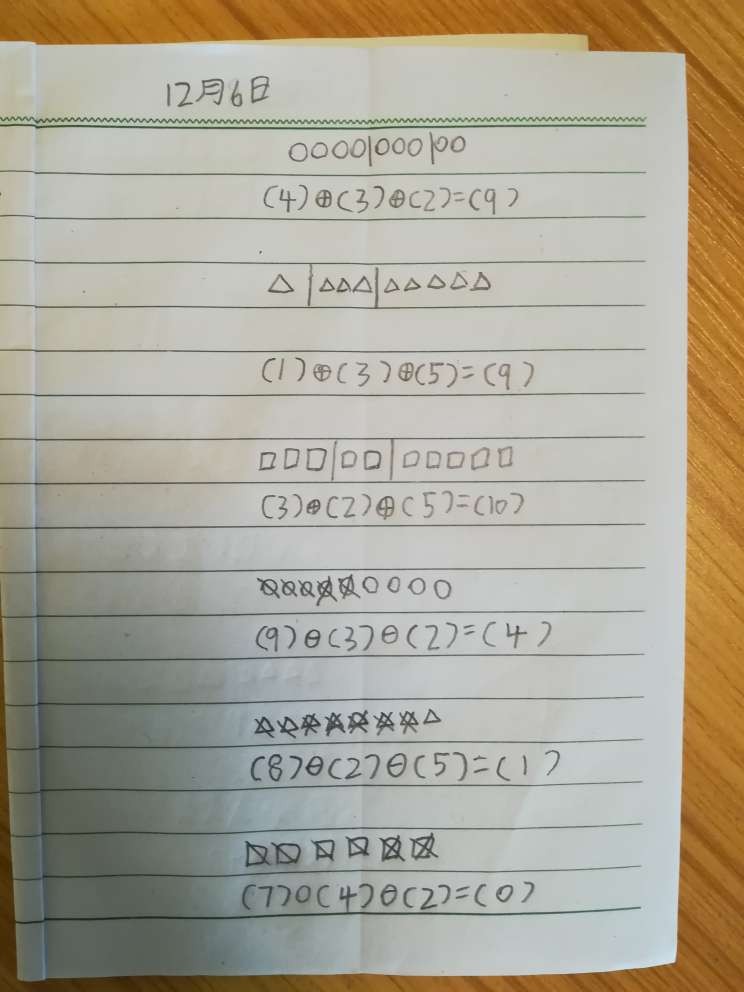 12月6日
○○○○|○○○|○○
(4)⊕(3)⊕(2)=(9)
△|△△△|△△△△△
(1)⊕(3)⊕(5)=(9)
□□□|□□|□□□□□
(3)⊕(2)⊕(5)=(10)
(9)⊖(3)⊖(2)=(4)
(8)⊖(2)⊖(5)=(1)
(7)○(4)⊖(2)=(0)